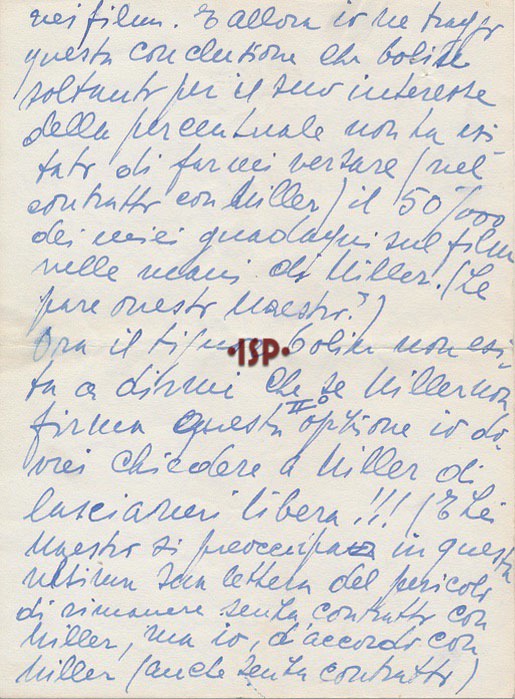 nei films. E allora io ne traggo
questa conclusione che Colin
soltanto per il suo interesse
della percentuale non ha esi
tato di farmi versare (nel
contratto con Miller) il 50%
dei miei guadagni sul film
nelle mani di Miller. (Le
pare onesto Maestro?)
Ora il signor Colin non esi
ta a dirmi che se Miller non
firma questa IIº optione io do
vrei chiedere a Miller di
lasciarmi libera!!! (E Lei
Maestro si preoccupa in questa
ultima sua lettera del pericolo
di rimanere senza contratto con
Miller, ma io, d'accordo con
Miller (anche senza contratto)
ISP